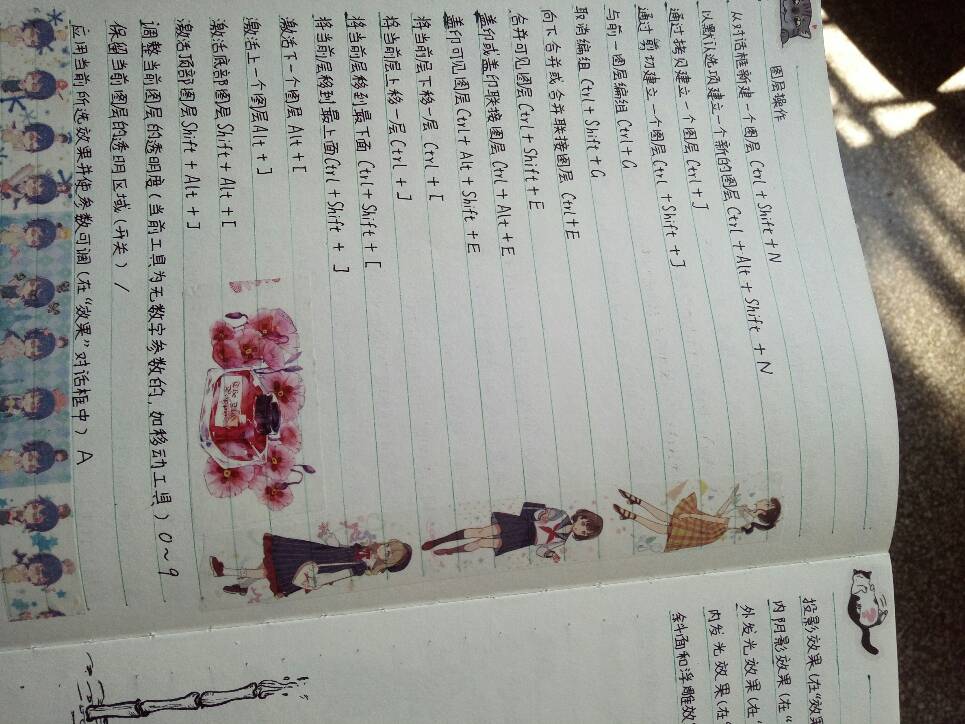 图层操作
从对话框新建一个图层 Ctrl + Shift + N
以默认选项建立一个新的图层 Ctrl + Alt + Shift + N
通过拷贝建立一个图层 Ctrl + J
通过剪切建立一个图层 Ctrl + Shift + J
与前一图层编组 Ctrl + G
取消编组 Ctrl + Shift + G
向下合并或合并联接图层 Ctrl + E
合并可见图层 Ctrl + Shift + E
盖印或盖印联接图层 Ctrl + Alt + E
盖印可见图层 Ctrl + Alt + Shift + E
将当前层下移一层 Ctrl + [
将当前层上移一层 Ctrl + ]
将当前层移到最下面 Ctrl + Shift + [
将当前层移到最上面 Ctrl + Shift + ]
激活下一个图层 Alt + [
激活上一个图层 Alt + ]
激活底部图层 Shift + Alt + [
激活顶部图层 Shift + Alt + ]
调整当前图层的透明度(当前工具为无数字参数的,如移动工具) 0~9
保留当前图层的透明区域(开关) /
应用当前所选效果并使参数可调(在“效果”对话框中) A
投影效果(在“效果
内阴影效果(在“
外发光效果(在“
内发光效果(在
斜面和浮雕效